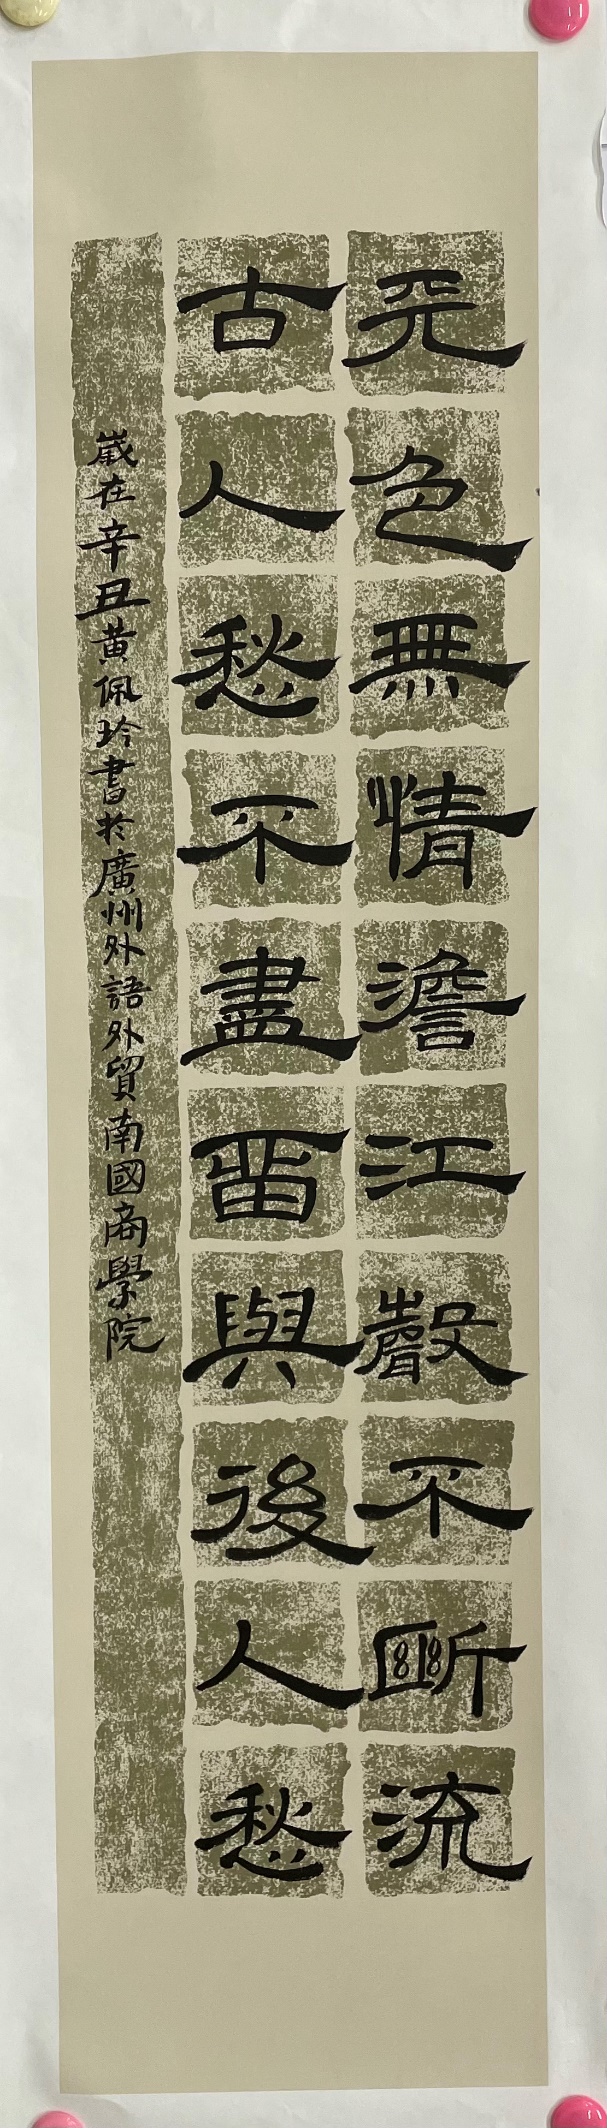 天色無情澹江聲不斷流
古人愁不盡畱與後人愁
歲在辛丑黃佩玲書於廣州外語外貿南國商學院